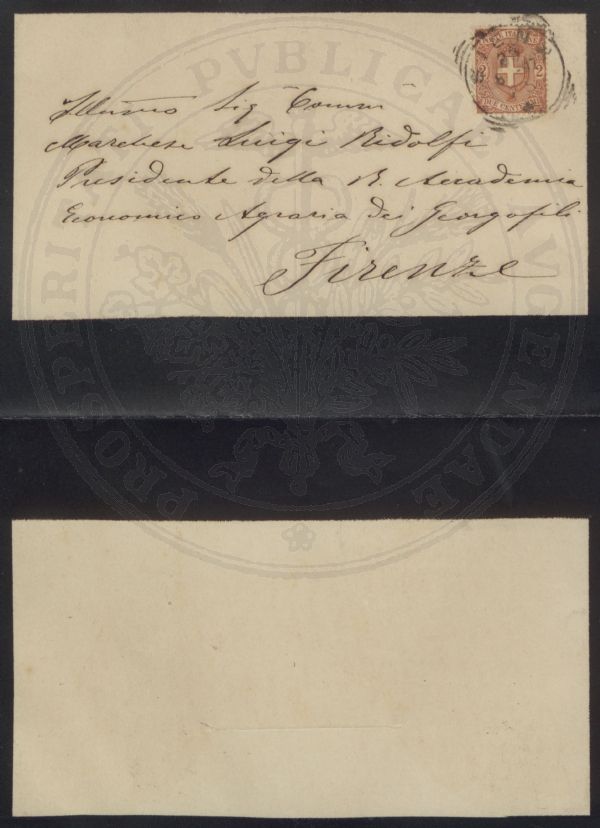 Illmo Sig Comm
Marchese Luigi Ridolfi
Presidente della R. Accademia
Economico Agraria dei Georgofili
Firenze
2 2
DUE CENTESIMI
PROSPERITATI PVBLICAE AVGENDAE